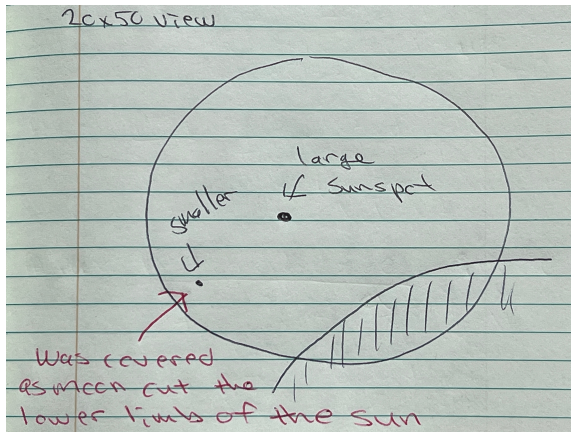 20x50 view
large
sunspot
smaller
Was covered
as moon cut the
lower limb of the sun